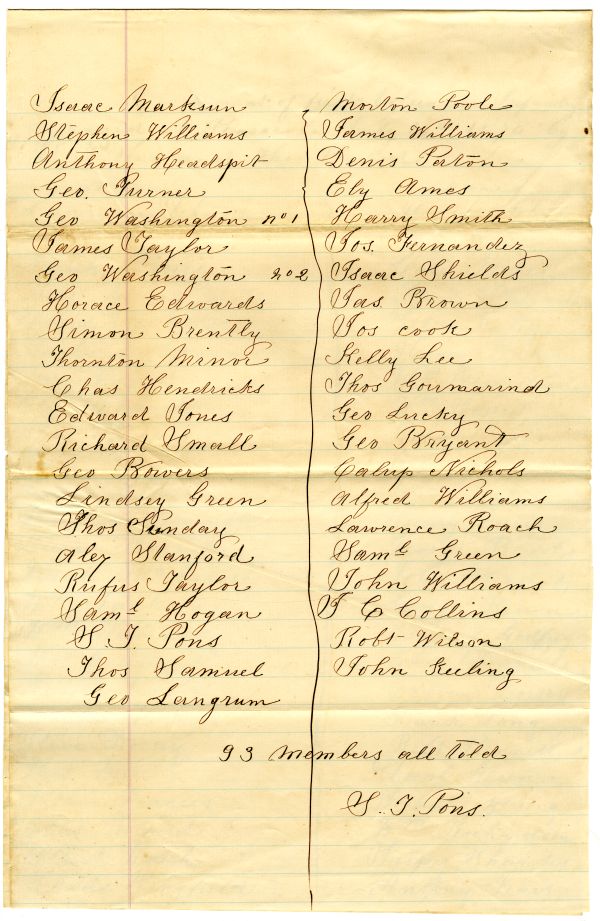 Isaac Marksun
Stephen Williams
Anthony Headspit
Geo. Turner
Geo Washington no 1
James Taylor
Geo Washington no 2
Horace Edwards
Simon Brently
Thornton Minor
Chas Hendricks
Edward Jones
Richard Small
Geo Bowers
Lindsey Green
Thos Sunday
Alex Stanford
Rufus Taylor
Saml Hogan
S. T. Pons
Thos Samuel
Geo Langrum
Morton Poole
James Williams
Denis Paton
Ely Ames
Harry Smith
Jos. Fernandez
Isaac Shields
Jas. Brown
Jos cook
Kelly Lee
Thos Goumarind
Geo Lucky
Geo Bryant
Calup Nichols
Alfred Williams
Lawrence Roach
Saml Green
John Williams
T C Collins
Robt Wilson
John Keeling
93 members all told
S. T. Pons.